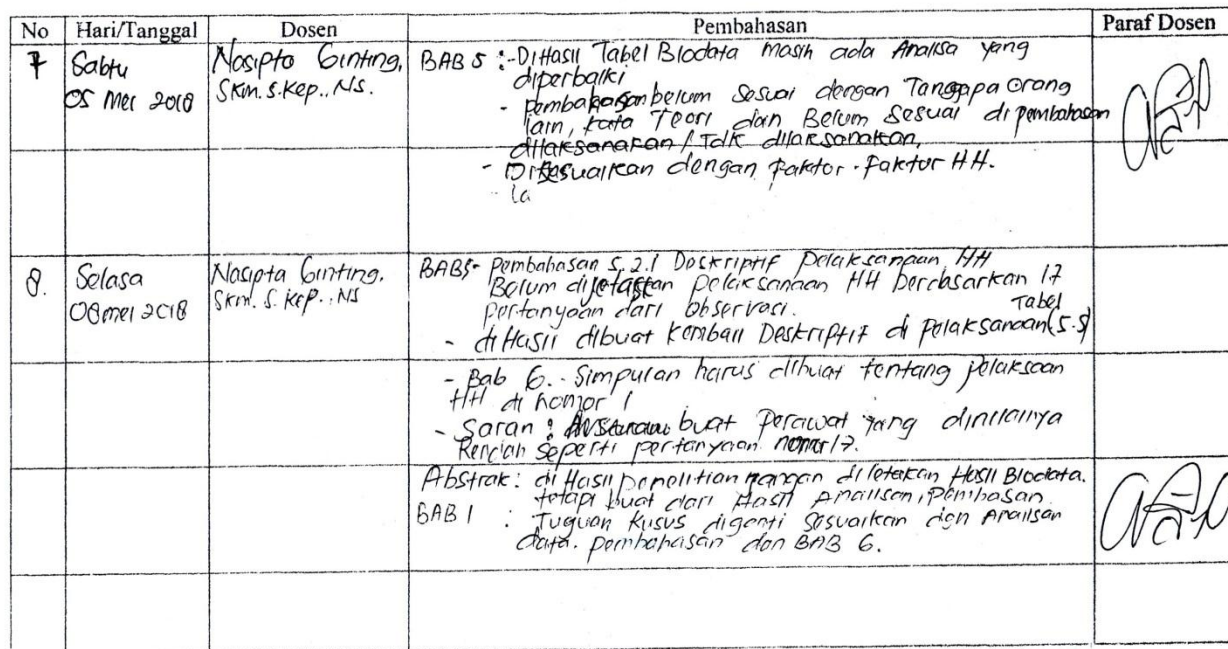 No Hari/Tanggal Dosen Pembahasan Paraf Dosen
7 Sabtu 05 Mei 2018
Nasipta Ginting, Skm. S.Kep., Ns.
BAB 5 : - DiHasil Tabel Biodata masih ada Analisa yang
diperbaiki
- pembahasan belum sesuai dengan Tanggapa orang
lain, kata Teori dan Belum Sesuai di pembahasan
dilaksanakan / Tdk dilaksanakan,
- Disesuaikan dengan Faktor-Faktor HH.
la
8. Selasa 08 mei 2018
Nasipta Ginting. Skm. S. Kep., NS
BAB5- Pembahasan 5.2.1 Deskriptif Pelaksanaan HH
Belum dijelaskan Pelaksanaan HH berdasarkan 17
pertanyaan dari observasi.
- diHasil dibuat kembali Deskriptif di Pelaksanaan Tabel (5.5)
- Bab 6. Simpulan harus dibuat tentang pelaksaan
HH di nomor 1
- Saran : buat Perawat yang dinilainya
Rendah seperti pertanyaan nomor 17.
Abstrak: di Hasil penelitian jangan diletakan Hasil Biodata.
tetapi buat dari Hasil Analisan, Pembasan
BAB 1 : Tuguan Kusus diganti Sesuaikan dgn Analisan
data. pembahasan dan BAB 6.